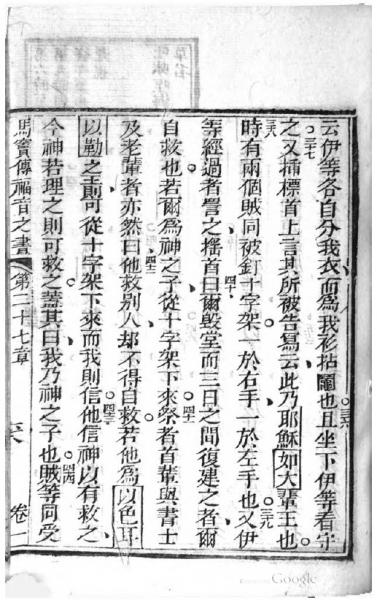 云伊等各自分我衣而為我衫拈鬮也三六且坐下伊等看守
之三七又插標首上言其所被告寫云此乃耶穌如大輩王也
三八時有兩個賊同被釘十字架一於右手一於左手也三九又伊
等經過者詈之搖首曰四十爾毀堂而三日之間復建之者爾
自救也若爾為神之子從十字架下來四一祭者首輩與書士
及老輩者亦然曰四二他救別人却不得自救若他為以色耳
以勒之王則可從十字架下來而我則信他信神以有救之
今神若理之則可救之蓋其曰我乃神之子也四四賊等同受
馬竇傳福音之書 第二十七章 卷一
Google